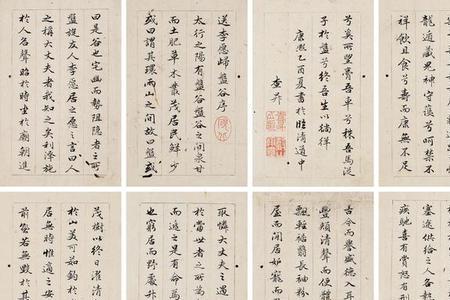 龍遁藏鬼神守護兮呵禁不
祥飲且食兮壽而康無不足
兮奚所望膏吾車兮秣吾馬從
子於盤兮終吾生以徜徉
康熙乙酉夏書於臨清道中
查昇
送李愿歸盤谷序
太行之陽有盤谷盤谷之間泉甘
而土肥草木叢茂居民鮮少
或曰謂其環兩山之間故曰盤或
曰是谷也宅幽而勢阻隱者之所
盤旋友人李愿居之愿之言曰人
之稱大丈夫者我知之矣利澤施
於人名聲昭於時坐於廟朝進
塞途供給之人各
疾馳喜有賞怒有刑
古今而譽盛德入耳
豐頰清聲而便體
飄輕裾翳長袖粉
屋而閒居妬寵而
取憾大丈夫之遇
於當世者之所
而逃之是有命焉
也窮居而野處升
茂樹以終日濯清
於山美可茹釣於
居無時惟適之安
前孰若無毀於其